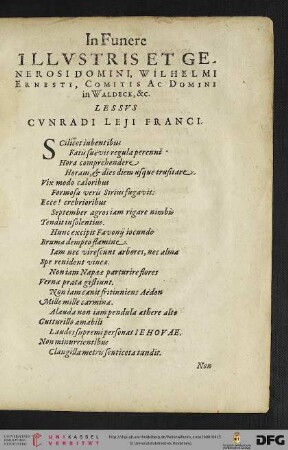 In Funere
ILLVSTRIS ET GE-
NEROSI DOMINI, WILHELMI
ERNESTI, COMITIS AC DOMINI
in WALDECK, &c.
LESSVS
CVNRADI LEJI FRANCI.
SCilicet iubentibus
Fatis suevit regula perenni
Hora comprehendere
Horam, & dies diem usque trusitare.
Vix modo caloribus
Formosa veris Sirius fugavit:
Ecce! crebrioribus
September agros iam rigare nimbis
Tendit insolentius.
Hunc excipit Favonij iocundo
Bruma dempto flamine.
Iam nec virescunt arbores, nec alma
Spe renident vineæ.
Non iam Napææ parturire flores
Verna prata gestiunt.
Non iam canit fritinniens Aëdon
Mille mille carmina.
Alauda non iam pendula æthere alto
Gutturillo amabili
Laudes supremi personat IEHOVAE.
Non minurrientibus
Clangilla metris senticeta tundit.
Non
UNIKASSEL
VERSITÄT
DFG